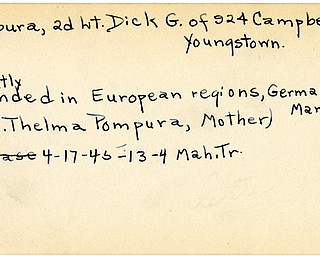 pura, 2d Lt. Dick G. of 924 Campbe
Youngstown.
tly
nded in European regions, Germa
Mar
.Thelma Pompura, Mother)
ase 4-17-45-13-4 Mah.Tr.